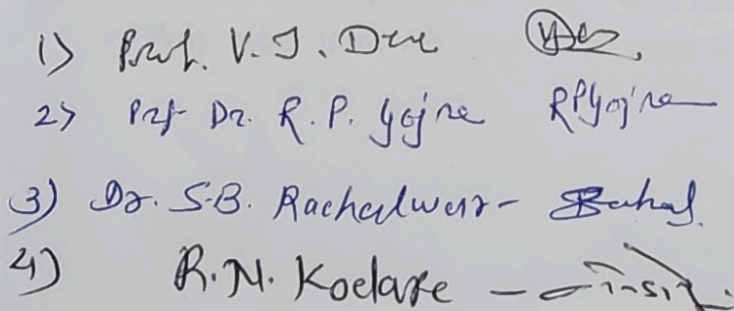 1) Prof. V. J. Dere
2) Prf Dr. R. P. Gojre RPGojre
3) Dr. S.B. Rachalwar-
4) R. N. Koelare -